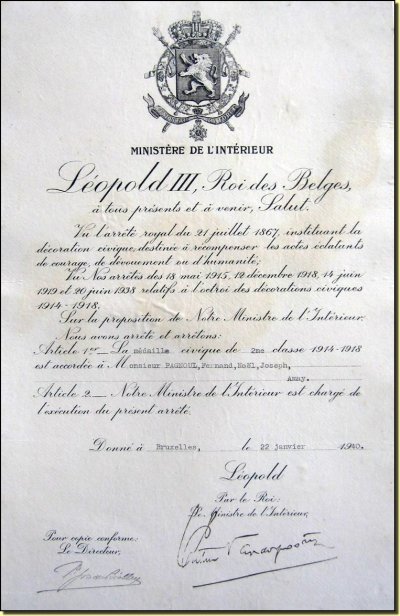 MINISTÈRE DE L'INTÉRIEUR
Léopold III, Roi des Belges,
à tous présents et à venir, Salut.
Vu l'arrêté royal du 21 juillet 1867, instituant la
décoration civique, destinée à récompenser les actes éclatants
de courage, de dévouement ou d'humanité;
Vu Nos arrêtés des 18 mai 1915, 12 décembre 1918, 14 juin
1919 et 20 juin 1938 relatifs à l'octroi des décorations civiques
1914-1918.
Sur la proposition de Notre Ministre de l'Intérieur,
Nous avons arrêté et arrêtons:
Article 1er _ La médaille civique de 2me classe 1914-1918
est accordée à Monsieur PAGNOUL, Fernand, Noël, Joseph,
Amay.
Article 2 _ Notre Ministre de l'Intérieur est chargé de
l'exécution du présent arrêté.
Donné à Bruxelles, le 22 janvier 1940.
Léopold
Par le Roi:
Le Ministre de l'Intérieur,
Pour copie conforme:
Le Directeur,